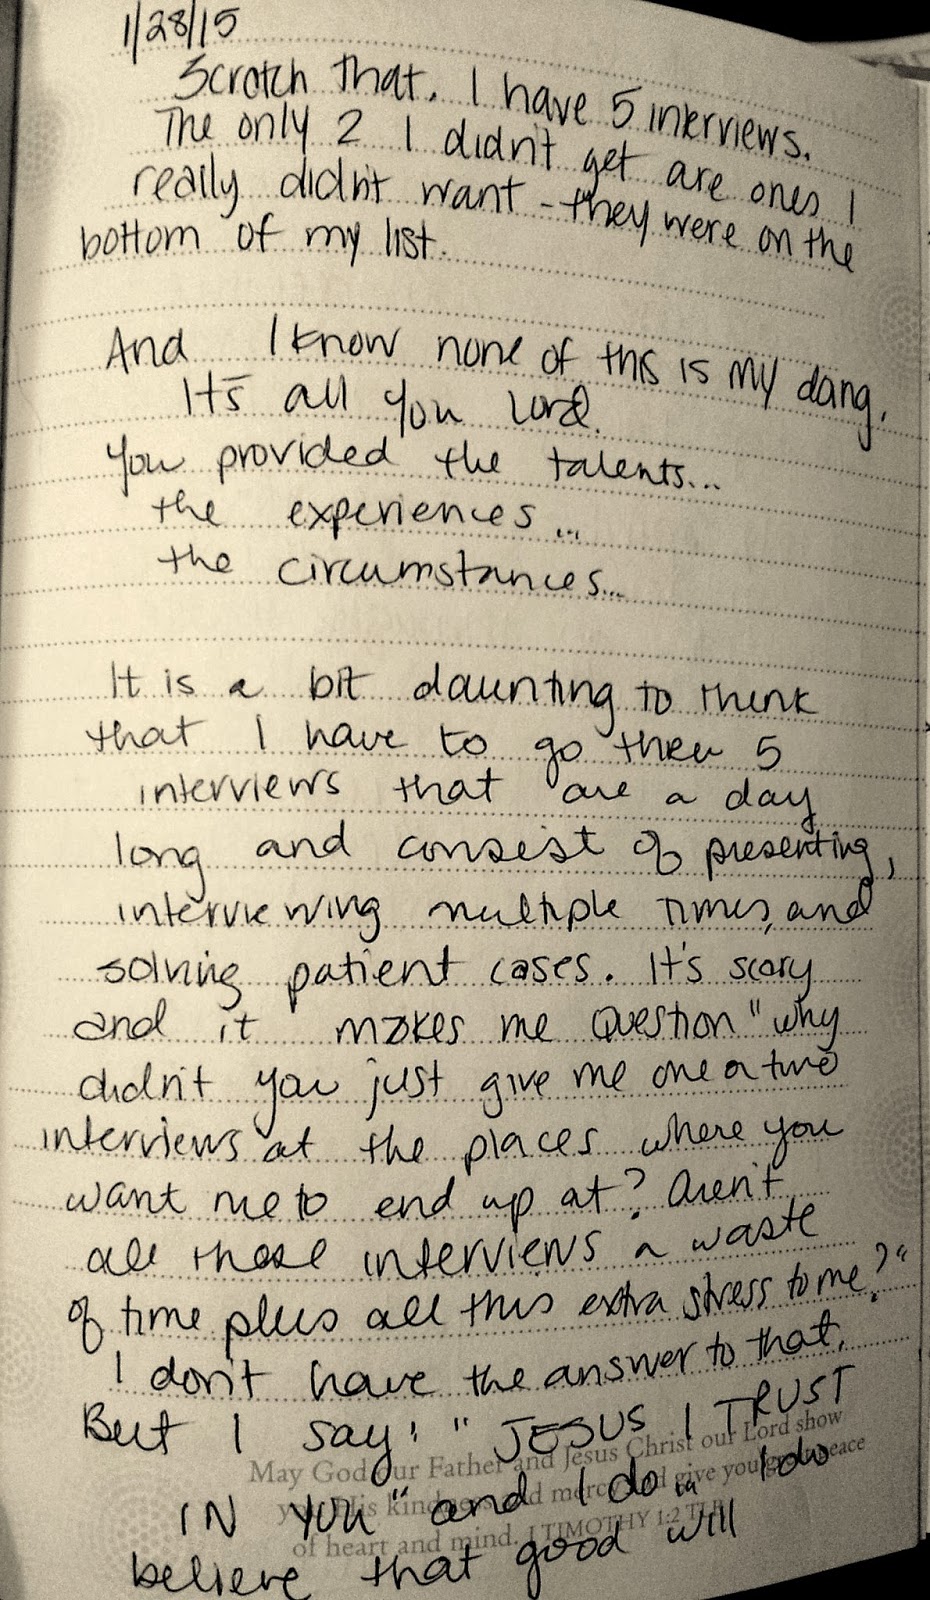 1/28/15
Scratch that. I have 5 interviews.
The only 2 I didn't get are ones I
really didn't want - they were on the
bottom of my list.
And I know none of this is my doing.
It's all you Lord.
You provided the talents...
the experiences...
the circumstances...
It is a bit daunting to think
that I have to go thru 5
interviews that are a day
long and consist of presenting,
interviewing multiple times, and
solving patient cases. It's scary
and it makes me question "why
didn't you just give me one or two
interviews at the places where you
want me to end up at? Aren't
all these interviews a waste
of time plus all this extra stress to me?"
I don't have the answer to that.
But I say: "JESUS I TRUST
May God our Father and Jesus Christ our Lord show
IN YOU" and I do... I do
you His kindness and mercy and give you great peace
of heart and mind. I TIMOTHY 1:2 TLB
believe that good will